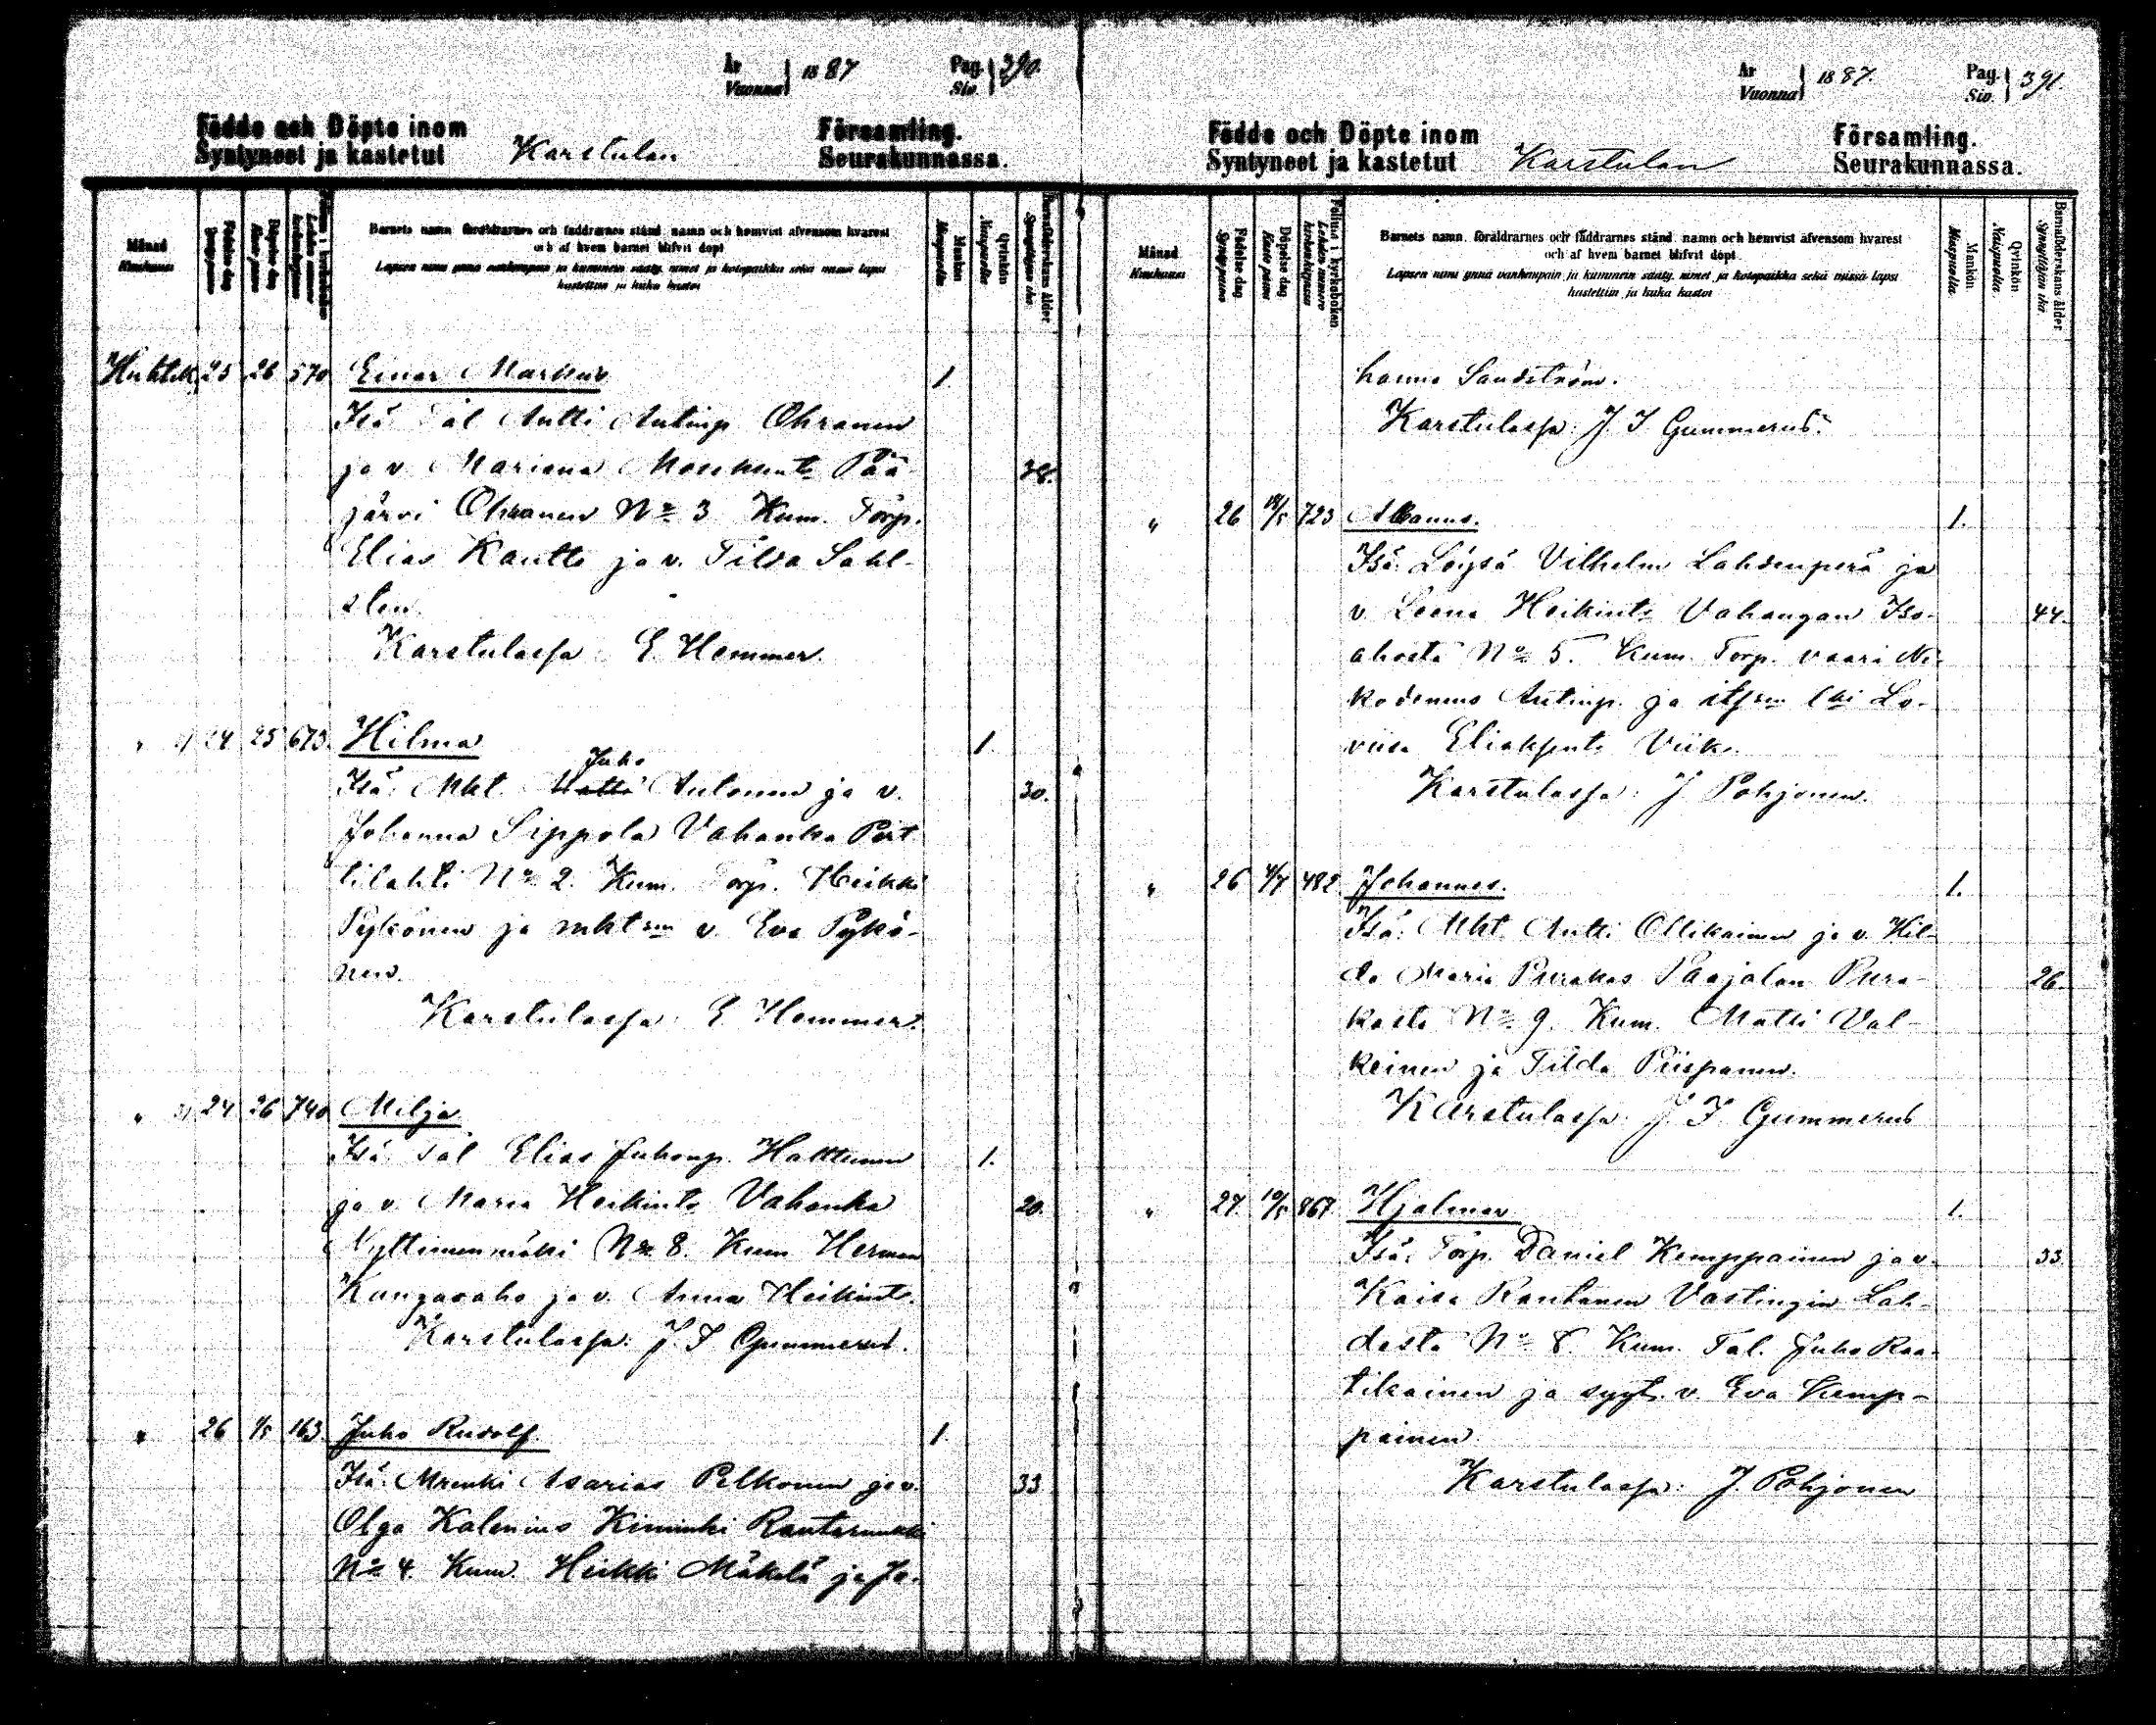 År
Vuonna } 1887
Pag.
Siv. } 390.
Födde och Döpte inom
Syntyneet ja kastetut
Karstulan
Församling.
Seurakunnassa.
Månad
Kuukausi
Födelse dag
Syntymä päivä
Döpelse dag
Kaste päivä
Barnets namn, föräldrarnes och faddrarnes stånd, namn och hemvist äfvensom hvarest
och af hvem barnet blifvit döpt
Lapsen nimi ynnä vanhempain ja kummein sääty, nimet ja kotopaikka sekä missä lapsi
kastettiin ja kuka kastoi
Mankön
Miespuolia.
Qvinkön
Naispuolia.
Barnaföderskans ålder
Synnyttäjän ikä
Huhtik. 25 26 570 Einar Markus 1.
Isä: Tal Antti Antinp. Ohranen
ja v. Mariana Pää- 38.
järvi Ohranen No 3 Kum. Torp.
Elias Kautto ja v. Tilda Sahl-
sten
Karstulassa: E. Hemmer.
" 24 25 673. Hilma 1.
Juho
Isä: Mkt. Matti Autonen ja v. 30.
Johanna Sippola Vahanka Pirt
tilahti No 2. Kum. Torp. Heikki
Pykönen ja mkt:n v. Eva Pykö-
nen.
Karstulassa: E. Hemmer.
" 24 26 740 Milja
Isä: Tal Elias Juhonp. Halttunen 1.
ja v. Maria Heikint. Vahanka 20.
No 8. Kum. Herman
Kangasaho ja v. Anna Heikint.
Karstulassa: J. I Gummerus.
" 26 1/5 163. Juho Rudolf. 1.
Isä: Asarias Pelkonen ja v. 33
Olga Kalenius Kiminki
No 4. Kum. Heikki Mäkelä ja Jo-
År
Vuonna } 1887.
Pag.
Siv. } 391.
Födde och Döpte inom
Syntyneet ja kastetut
Karstulan
Församling.
Seurakunnassa.
Månad
Kuukausi
Födelse dag
Syntymä päivä
Döpelse dag
Kaste päivä
Folium i kyrkoboken
Lehden numero
kirkonkirjassa
Barnets namn, föräldrarnes och faddrarnes stånd, namn och hemvist äfvensom hvarest
och af hvem barnet blifvit döpt
Lapsen nimi ynnä vanhempain ja kummein sääty, nimet ja kotopaikka sekä missä lapsi
kastettiin ja kuka kastoi
Mankön
Miespuolia.
Qvinkön
Naispuolia.
Barnaföderskans ålder
Synnyttäjän ikä
hanna Sandström.
Karstulassa: J. I Gummerus.
" 26 723 1.
Isä: Löysä Vilhelm Lahdenperä ja
v. Leena Heikint. Vahangan Iso- 44.
ahosta No 5. Kum. Torp. vaari Ni-
kodemus Antinp. ja Lo-
viisa Viik.
Karstulassa: J Pohjonen.
" 26 4/7 482. Johannes. 1.
Isä: Mkt. Antti Ollikainen ja v. Hil-
da Maria Purakas Paajalan Pura- 26.
kasta No 9. Kum. Matti Val-
keinen ja Tilda Piispanen.
Karstulassa: J. I Gummerus
" 27. 10/5 867. Hjalmar 1.
Isä: Torp. Daniel Kemppainen ja v. 33
Kaisa Rautanen Vastingin Lah-
desta No 8. Kum. Tal. Juho Raa-
tikainen ja syyt. v. Eva Kemp-
painen.
Karstulassa: J. Pohjonen